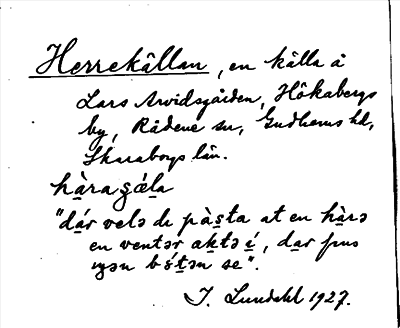 Herrekällan, en källa å
Lars Arvidsgården, Hökabergs
by, Rådene sn, Gudhems hd,
Skaraborgs län.
hàra
"dár velə de pàsta at en hàrə
en ventər aktə í, dar
se".
J. Lundahl 1927.